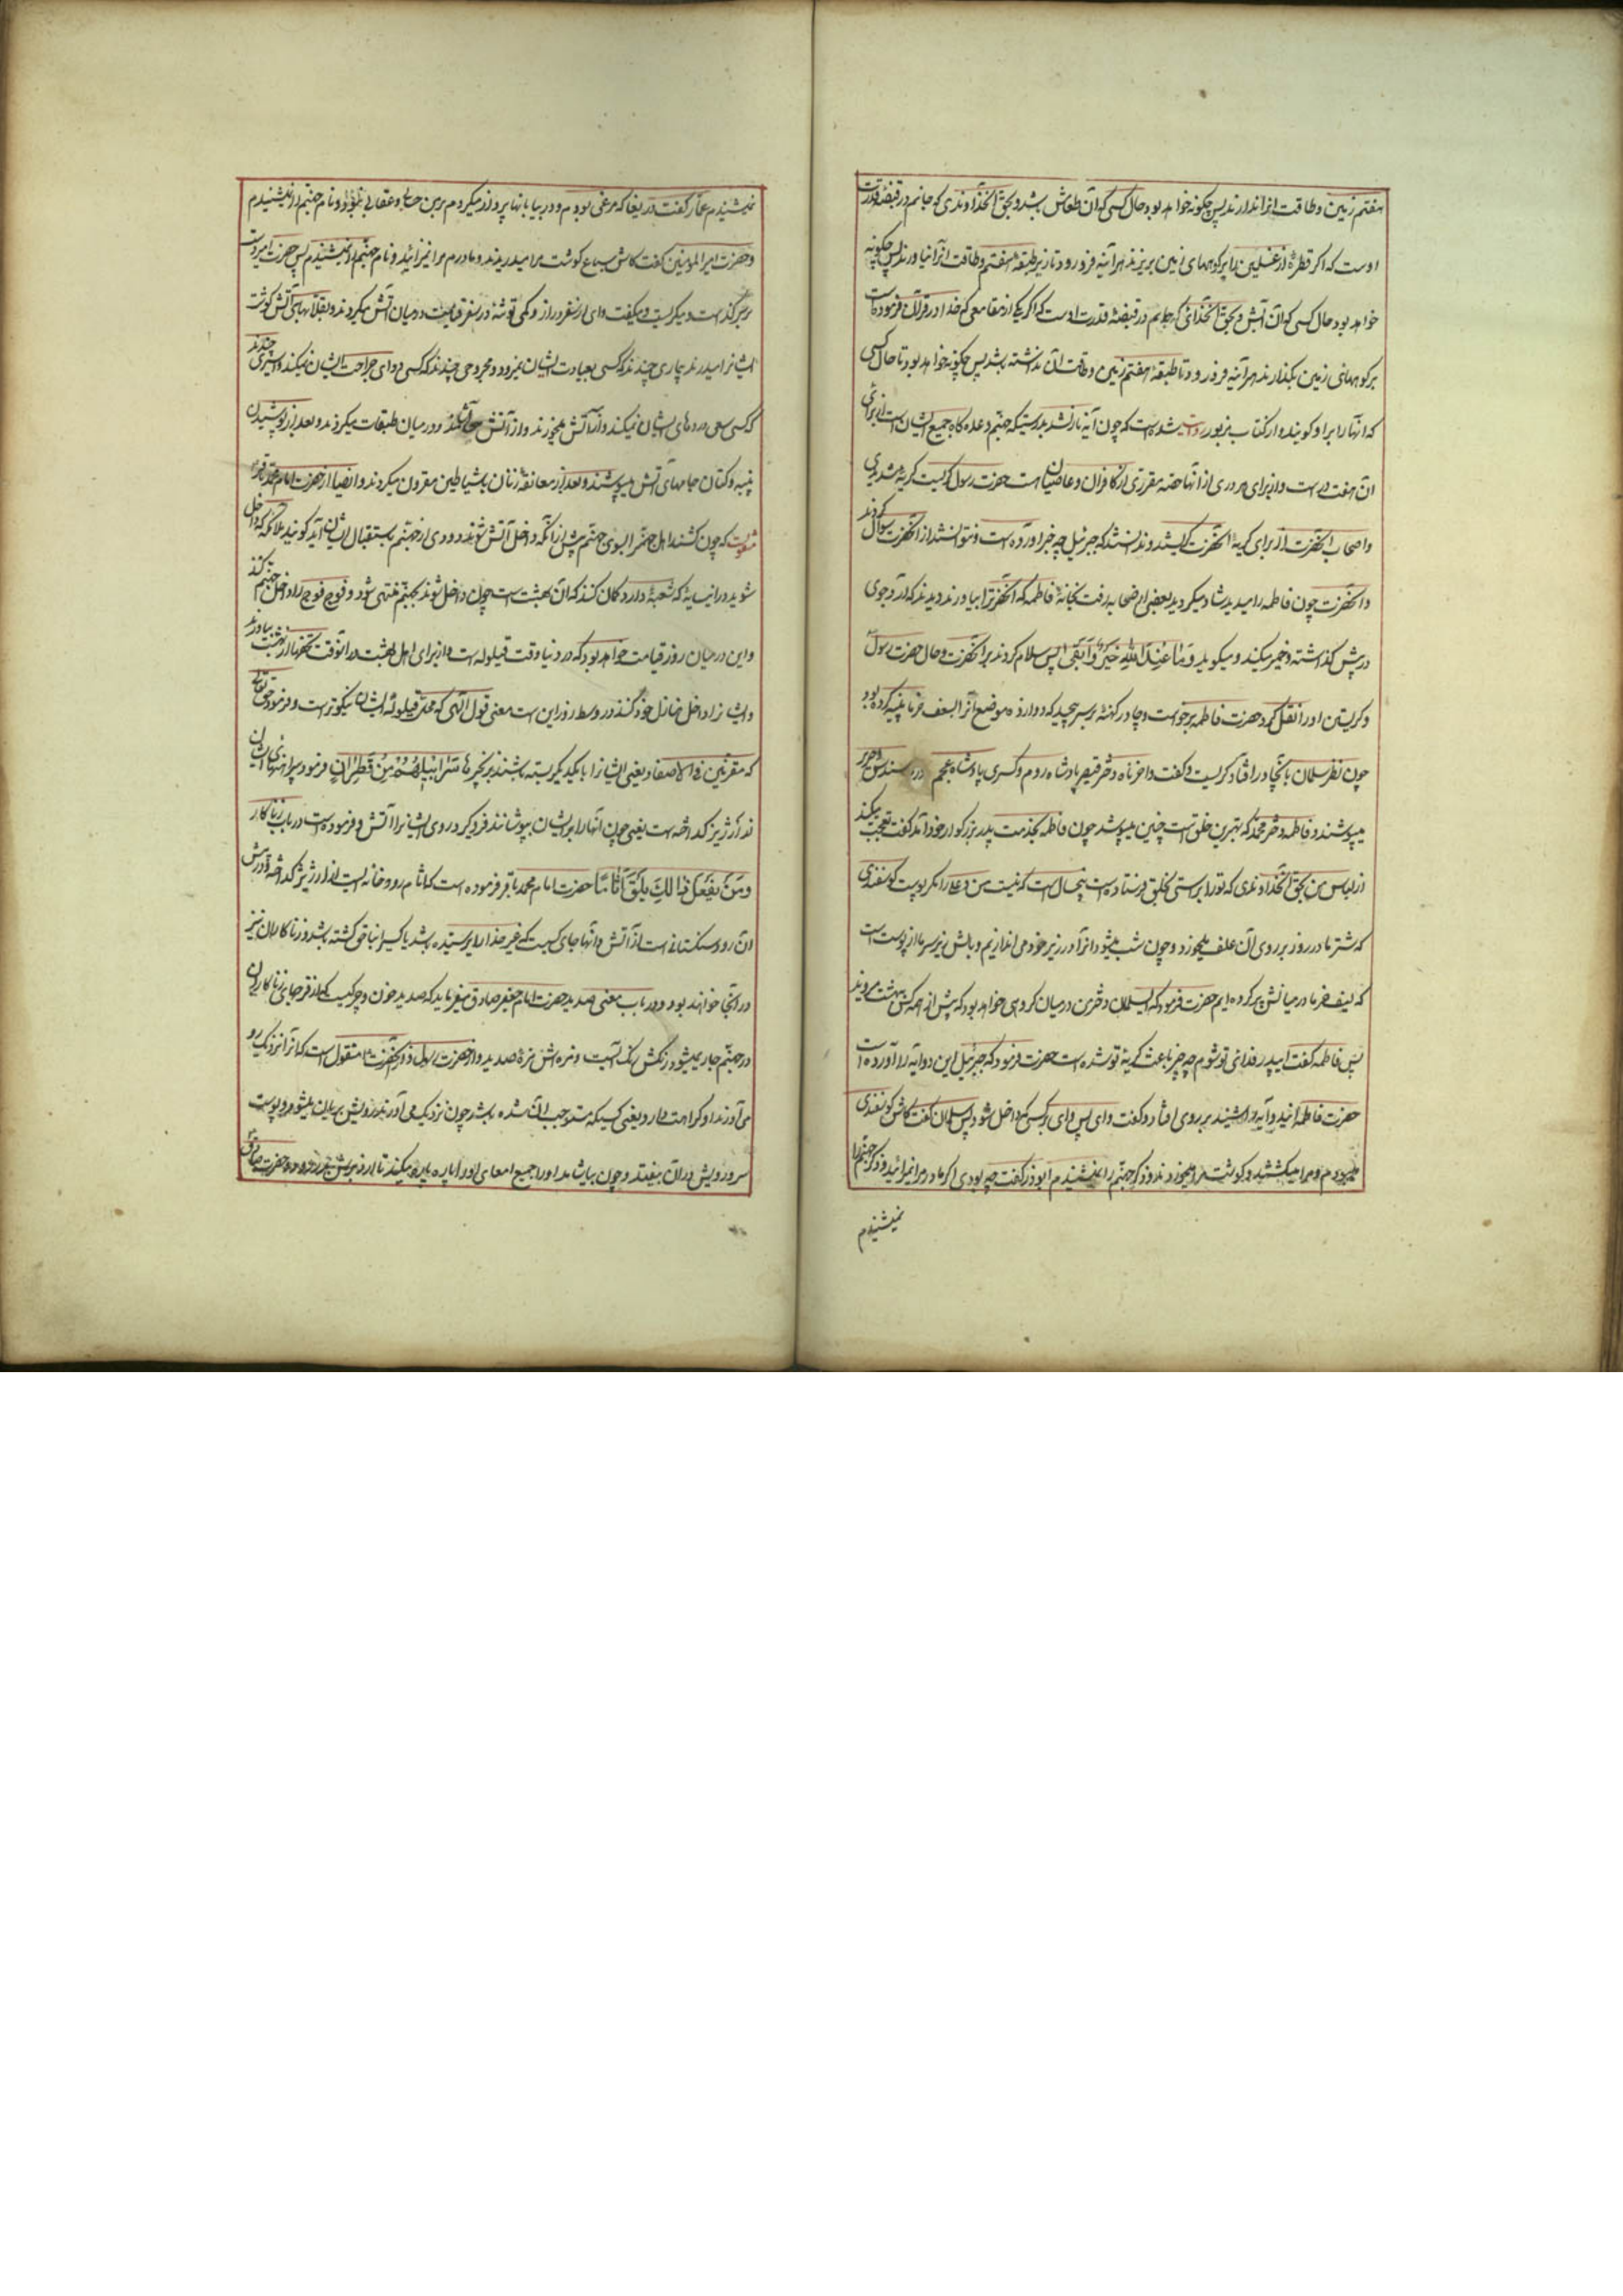 هفتم زمین و طاقت انرا ندارند پس چکونه خواهد بود حال کسی که آن طعامش باشد و بحق آنخداوندی که جانم در قبضهٔ قدرت
اوست که اکر قطرهٔ از غسلین را بر کوههای زمین بریزند هرآینه فرو رود تا زیر طبقهٔ هفتم و طاقت انرا نیاورند پس چکونه
خواهد بود حال کسی که آن آبش و بحق آنخدائی که جانم در قبضهٔ قدرت اوست که اکر یکی از مقامعی که خدا در قرآن فرموده است
بر کوههای زمین بکذارند هرآینه فرو رود تا طبقهٔ هفتم زمین و طاقت آن نداشته باشد پس چکونه خواهد بود تا حال کسی
که انها را بر او کوبند و از کتاب مزبور روایت شده است که چون آیه نازل شد بدرستیکه جهنم وعده کاه جمیع ایشان است از برای
آن هفت در است و از برای هر دری از انها حصه مقرری از کافران و عاصیان است حضرت رسول کریست کریهٔ شدیدی
واصحاب آنحضرت از برای کریهٔ آنحضرت کریستند و ندانستند که جبرئیل چه خبر اورده است و نتوانستند از آنحضرت سوال کردند
و آنحضرت چون فاطمه را میدید شاد میکردید بعضی از صحابه رفت بخانهٔ فاطمه که آنحضرت را بیاورند دیدند که آرد جوی
در پیش کذاشته و خمیر میکند و میکوید وَمَا عِنْدَ اللّٰهِ خَیْرٌ وَاَبْقٰی پس سلام کردند بر آنحضرت و حال حضرت رسول
و کریستن او را نقل کرد حضرت فاطمه برخواست و چادر کهنهٔ بر سر پیچید که دوازده موضع آنرا بسعف خرما پینه کرده بود
چون نظر سلمان بانچادر افتاد کریست و کفت واحزناه دختر قیصر پادشاه روم و کسری پادشاه عجم سندس و حریر
میپوشند و فاطمه دختر محمد که بهترین خلق است چنین میپوشد چون فاطمه بخدمت پدر بزرکوار خود آمد کفت تعجب میکند
از لباس من بحق آنخداوندی که تو را براستی بخلق فرستاده است پنج سال است که نیست من و علی را مکر پوست کوسفندی
که شتر ما در روز بر روی آن علف میخورد و چون شب میشود انرا در زیر خود می اندازیم و بالش زیر سر ما از پوست است
که لیف خرما در میانش پر کرده ایم حضرت فرمود که ای سلمان دخترمن در میان کروهی خواهد بود که پیش از همه کس ببهشت میروند
پس فاطمه کفت ای پدر فدای تو شوم چه چیز باعث کریهٔ تو شده است حضرت فرمود که جبرئیل این دو آیه را آورده است
حضرت فاطمه شنید بر روی افتاد و کفت وای پس وای بر کسی که داخل شود پس سلمان کفت کاش کوسفندی
میبودم و مرا میکشتند و کوشت مرا میخوردند و ذکر جهنم را نمیشنیدم ابوذر کفت چه بودی اکر مادر مرا نمیزائید و ذکر جهنم را
نمیشنیدم
نمیشنیدم عمار کفت دریغا که مرغی بودم و در بیابانها پرواز میکردم بر من حسابی و عقابی نبود و نام جهنم را نمیشنیدم
و حضرت امیرالمومنین کفت کاش سباع کوشت مرا میدریدند و مادرم مرا نمیزائید و نام جهنم را نمیشنیدم پس حضرت امیر دست
بر سر کذاشت و میکریست و میکفت وای از سفر دراز و کمی توشه در سفر قیامت در میان آتش میکردند و بقلابهای آتش کوشت
ایشانرا میدرند بیماری چندند که کسی بعیادت ایشان نمیرود و مجروحی چندند که کسی دوای جراحت ایشان نمیکند و اسیری چندند
که کسی سعی در رهائی ایشان نمیکند و از آتش میخورند و از آتش میآشامند و در میان طبقات میکردند و بعد از پوشیدن
پنبه و کتان جامهای آتش میپوشند و بعد از معانقهٔ زنان با شیاطین مقرون میکردند و ایضا از حضرت امام محمد باقر
منقولست که چون کشند اهل جهنم را بسوی جهنم پیش از انکه داخل آتش شوند دودی از جهنم باستقبال ایشان آید کویند ملائکه که داخل
شوید در این سایهٔ که سه شعبه دارد کمان کنند که آن بهشت است چون داخل شوند بجهنم منتهی شود و فوج فوج را داخل جهنم کنند
و این در میان روز قیامت خواهد بود که در دنیا وقت قیلوله است و از برای اهل بهشت در آنوقت تحفها از بهشت بیاورند
و ایشانرا داخل منازل خود کنند در وسط روز این است معنی قول الهی که محل قیلوله ایشان نیکوتر است و فرموده حق تعالی
که مقرنین فی الاصفاد یعنی ایشانرا با یکدیکر بسته باشند بزنجیرها سَرَابِیلُهُمْ مِنْ قَطِرَانٍ فرمود پیراهنهای ایشان
از ارزیز کداخته است یعنی چون انها را بر ایشان بپوشانند فرو کیرد روی ایشانرا آتش و فرموده است در باب زناکار
وَمَنْ یَفْعَلْ ذَالِکَ یَلْقَ اَثَامًا حضرت امام محمد باقر فرموده است که اثام رودخانه ایست از ارزیز کداخته و در پیش
آن رود سنکستانی است از آتش و انها جای کسیست که غیر خدا را پرستیده باشد یا کسی را بناحق کشته باشد و زناکاران نیز
در آنجا خواهند بود و در باب معنی صدید حضرت امام جعفر صادق میفرماید که صدید خون و چرکیست که از فرجهای زناکاران
در جهنم جاری میشود رنکش رنک آبست و مزه اش مزهٔ صدید و از حضرت رسول منقول است که آنرا نزدیک او
می آورند او کراهت دارد یعنی کسیکه مستوجب آن شده باشد چون نزدیک می آورند رویش بریان میشود و پوست
سر و رویش در آن بیفتد و چون بیاشامد او را جمیع امعای او را پاره پاره میکند تا از زیرش بدر رود و حضرت صادق